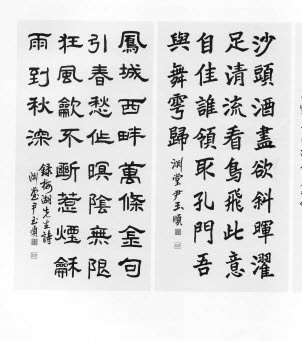 沙頭酒盡欲斜暉濯
足清流看鳥飛此意
自佳誰領取孔門吾
與舞雩歸
淵堂尹玉順
鳳城西畔萬條金句
引春愁作暝陰無限
狂風龡不斷惹煙龢
雨到秋深
錄梅湖先生詩
淵堂尹玉順